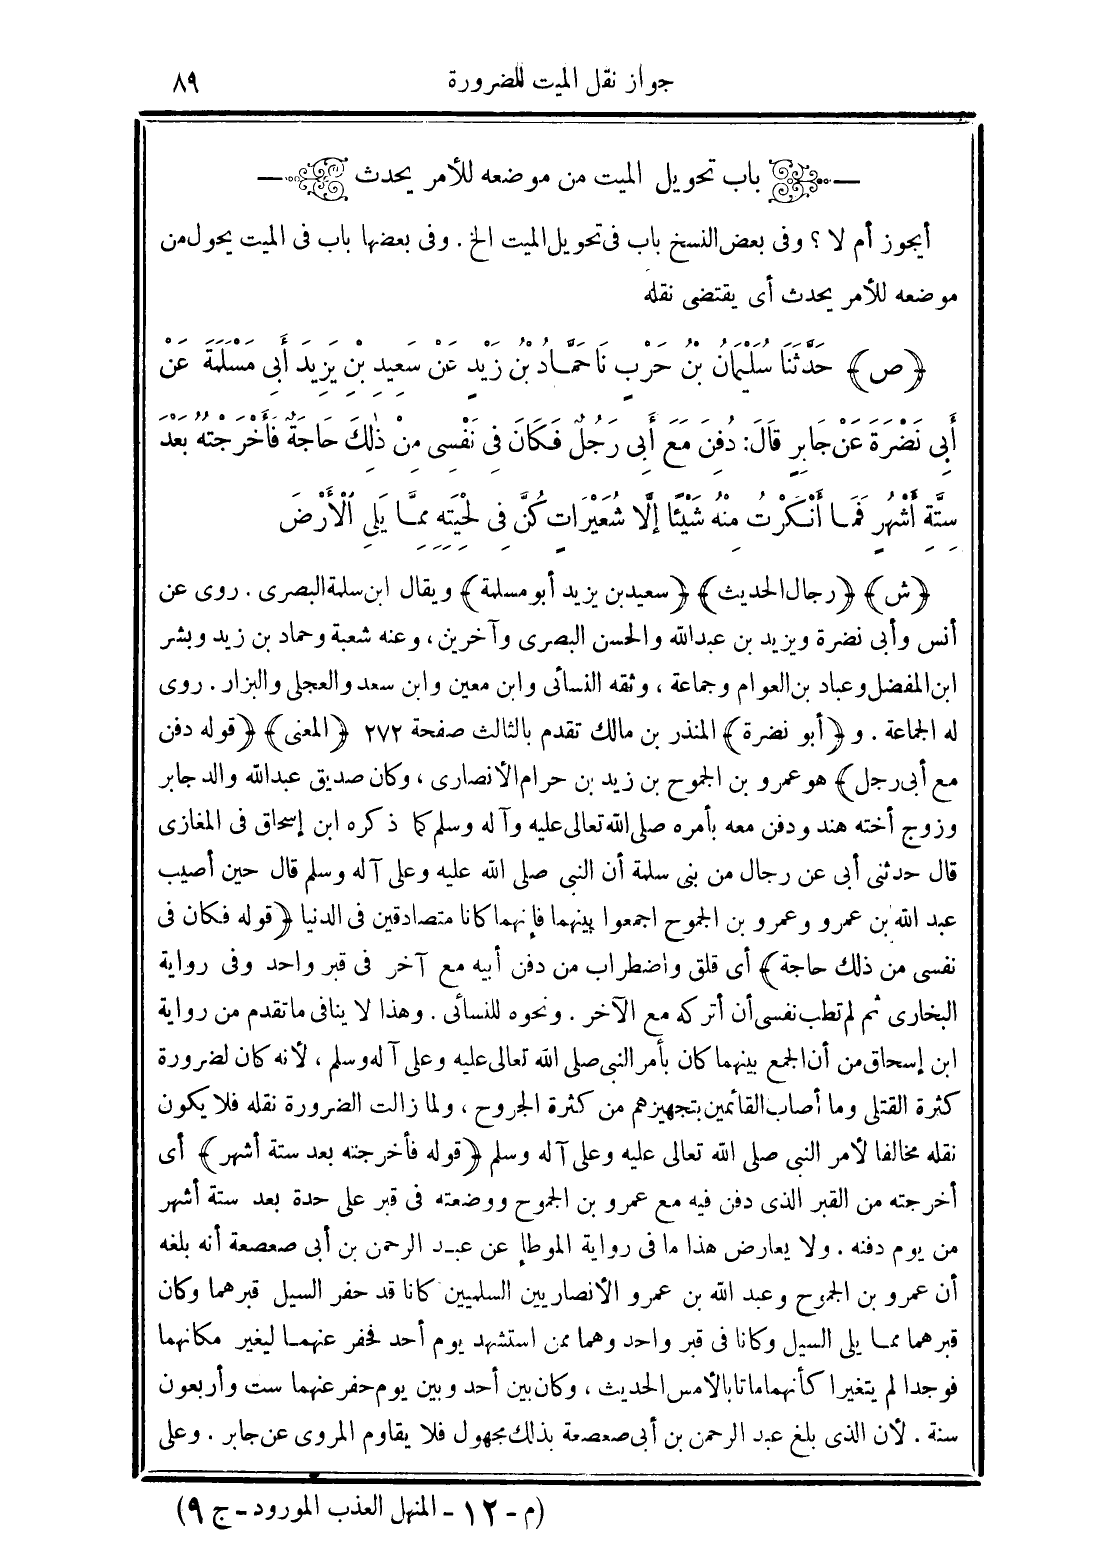 جواز نقل الميت للضرورة ٨٩
باب تحويل الميت من موضعه للأمر يحدث
أيجوز أم لا؟ وفى بعض النسخ باب فى تحويل الميت الخ. وفى بعضها باب فى الميت يحول من
موضعه للأمر يحدث أى يقتضى نقله
﴿ص﴾ حَدَّثَنَا سُلَيْمَانُ بْنُ حَرْبٍ نَا حَمَّادُ بْنُ زَيْدٍ عَنْ سَعِيدِ بْنِ يَزِيدَ أَبِى مَسْلَمَةَ عَنْ
أَبِى نَضْرَةَ عَنْ جَابِرٍ قَالَ: دُفِنَ مَعَ أَبِى رَجُلٌ فَكَانَ فِى نَفْسِى مِنْ ذٰلِكَ حَاجَةٌ فَأَخْرَجْتُهُ بَعْدَ
سِتَّةِ أَشْهُرٍ فَمَا أَنْكَرْتُ مِنْهُ شَيْئًا إِلَّا شُعَيْرَاتٍ كُنَّ فِى لِحْيَتِهِ مِمَّا يَلِى الْأَرْضَ
﴿ش﴾ ﴿رجال الحديث﴾ ﴿سعيد بن يزيد أبو مسلمة﴾ ويقال ابن سلمة البصرى. روى عن
أنس وأبى نضرة ويزيد بن عبدالله والحسن البصرى وآخرين، وعنه شعبة وحماد بن زيد وبشر
ابن المفضل وعباد بن العوام وجماعة، وثقه النسائى وابن معين وابن سعد والعجلى والبزار. روى
له الجماعة. و﴿أبو نضرة﴾ المنذر بن مالك تقدم بالثالث صفحة ٢٧٢ ﴿المعنى﴾ ﴿قوله دفن
مع أبى رجل﴾ هو عمرو بن الجموح بن زيد بن حرام الأنصارى، وكان صديق عبدالله والد جابر
وزوج أخته هند ودفن معه بأمره صلى الله تعالى عليه وآله وسلم كما ذكره ابن إسحاق فى المغازى
قال حدثنى أبى عن رجال من بنى سلمة أن النبى صلى الله عليه وعلى آله وسلم قال حين أصيب
عبد الله بن عمرو وعمرو بن الجموح اجمعوا بينهما فإنهما كانا متصادقين فى الدنيا ﴿قوله فكان فى
نفسى من ذلك حاجة﴾ أى قلق واضطراب من دفن أبيه مع آخر فى قبر واحد وفى رواية
البخارى ثم لم تطب نفسى أن أتركه مع الآخر. ونحوه للنسائى. وهذا لا ينافى ما تقدم من رواية
ابن إسحاق من أن الجمع بينهما كان بأمر النبى صلى الله تعالى عليه وعلى آله وسلم، لأنه كان لضرورة
كثرة القتلى وما أصاب القائمين بتجهيزهم من كثرة الجروح، ولما زالت الضرورة نقله فلا يكون
نقله مخالفا لأمر النبى صلى الله تعالى عليه وعلى آله وسلم ﴿قوله فأخرجته بعد ستة أشهر﴾ أى
أخرجته من القبر الذى دفن فيه مع عمرو بن الجموح ووضعته فى قبر على حدة بعد ستة أشهر
من يوم دفنه. ولا يعارض هذا ما فى رواية الموطإ عن عبد الرحمن بن أبى صعصعة أنه بلغه
أن عمرو بن الجموح وعبد الله بن عمرو الأنصاريين السلميين كانا قد حفر السيل قبرهما وكان
قبرهما مما يلى السيل وكانا فى قبر واحد وهما ممن استشهد يوم أحد فحفر عنهما ليغير مكانهما
فوجدا لم يتغيرا كأنهما ماتا بالأمس الحديث، وكان بين أحد وبين يوم حفر عنهما ست وأربعون
سنة. لأن الذى بلغ عبد الرحمن بن أبى صعصعة بذلك مجهول فلا يقاوم المروى عن جابر. وعلى
(م - ١٢ - المنهل العذب المورود - ج ٩)